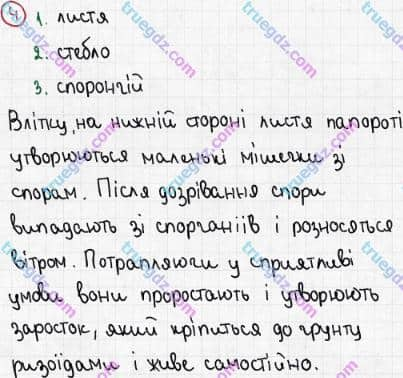 4 1. листя
2. стебло
3. спорангій
Влітку, на нижній стороні листя папороті
утворюються маленькі мішечки зі
спорам. Після дозрівання спори
випадають зі спорганіїв і розносяться
вітром. Потрапляючи у сприятливі
умови вони проростають і утворюють
заросток, який кріпиться до грунту
ризоїдами і живе самостійно.
truegdz.com